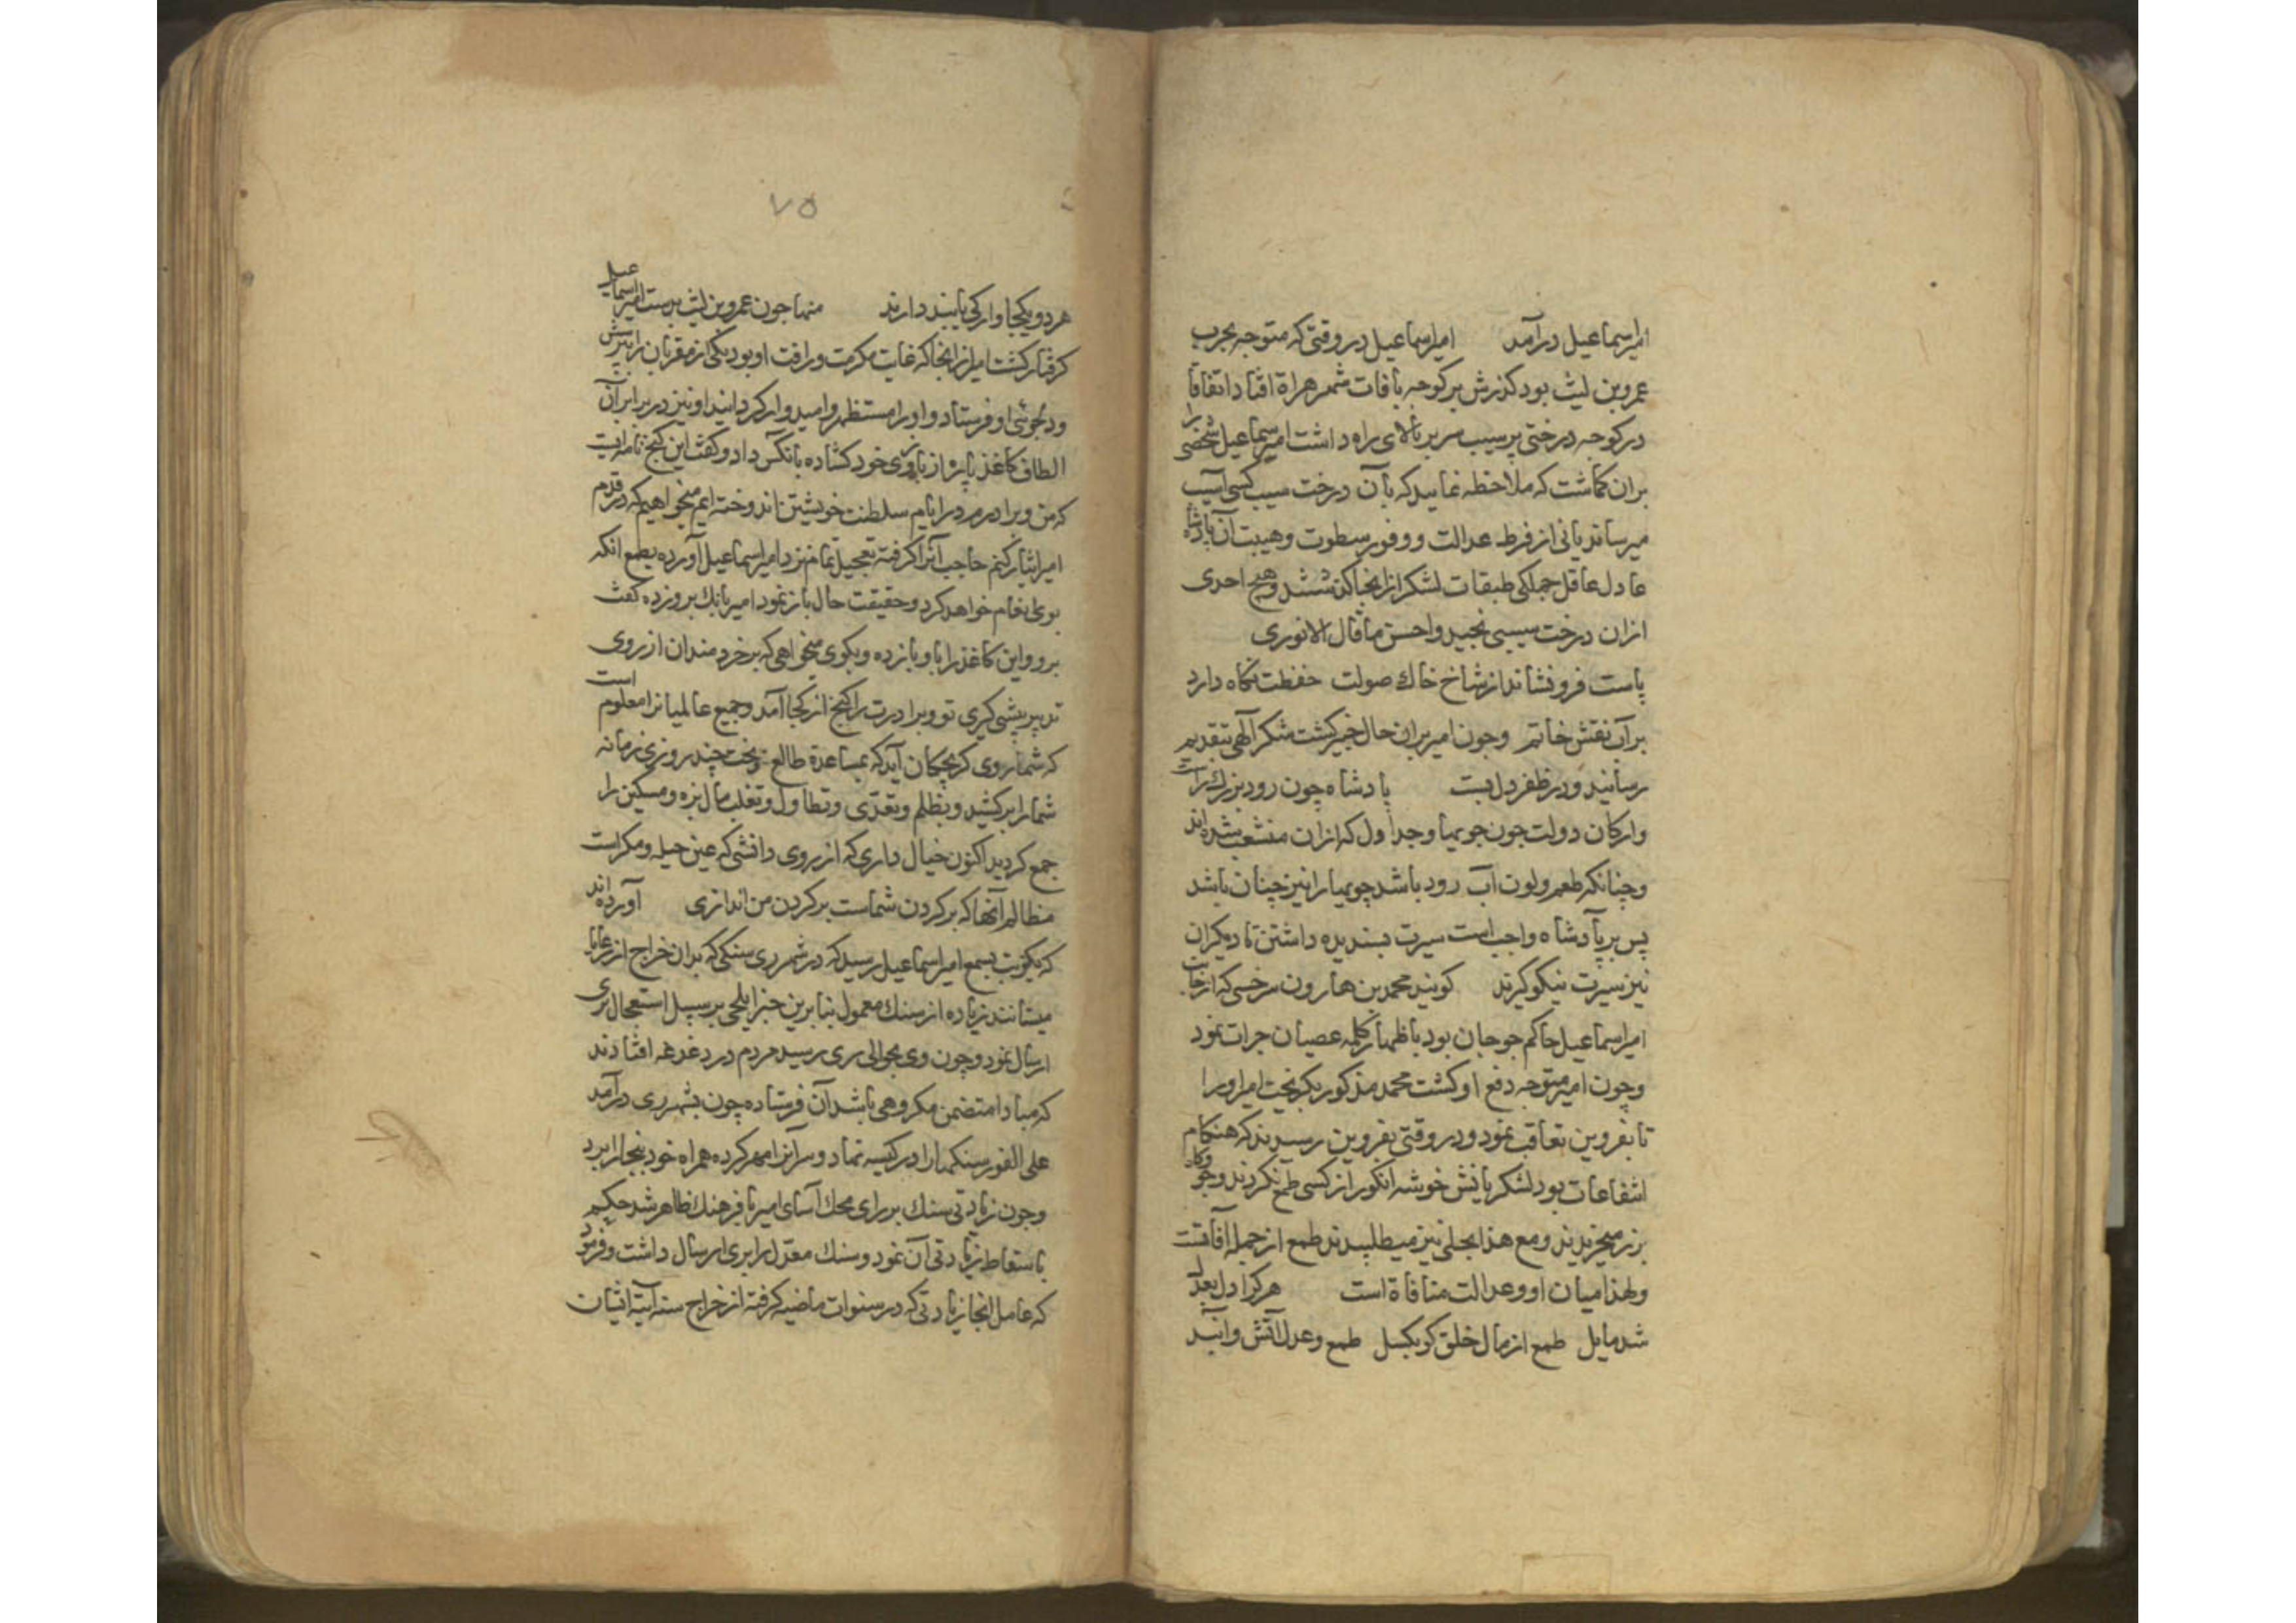 امیر اسماعیل درآمد امیر اسماعیل در وقتی که متوجه بحرب
عمرو بن لیث بود کذرش بر کوچه باغات شهر هراة افتاد اتفاقا
در کوچه درختی پر سیب سر بر بالای راه داشت امیر اسماعیل شخصی را
بران کماشت که ملاحظه نماید که بآن درخت سیب کسی آسیب
میرساند یا نی از فرط عدالت و وفور سطوت و هیبت آن پادشاه
عادل عاقل جملکی طبقات لشکر از انجا کذشتند و هیچ احدی
ازان درخت سیبی نچید و احسن ما قال الانوری
پاست فرو نشاند از شاخ خاك صولت حفظت نکاه دارد
برآن نقش خاتم و چون امیر بران حال خبیر کشت شکر آلهی بتقدیم
رسانید و در ظفر دل بست پادشاه چون رود بزرك است
وارکان دولت چون جویها و جداول که ازان منشعب شده اند
و چنانکه طعم و لون آب رود باشد جویها را نیز چنان باشد
پس بر پادشاه واجب است سیرت پسندیده داشتن تا دیکران
نیز سیرت نیکو کیرند کویند محمد بن هارون سرخسی که از جانب
امیر اسماعیل حاکم جرجان بود باظهار کلمه عصیان جرات نمود
و چون امیر متوجه دفع او کشت محمد مذکور بکریخت امیر اورا
تا بقزوین تعاقب نمود و در وقتی بقزوین رسیدند که هنکام
انتفاعات بود لشکریانش خوشه انکور از کسی طمع نکردند وجو وکاه
بزر میخریدند و مع هذا بحلی نیز میطلبیدند طمع از جمله آفاتست
ولهذا میان او و عدالت منافاة است هر کرا دل بعدل
شد مایل طمع از مال خلق کو بکسل طمع و عدل آتش و آبند
۷۵
هر دو یکجا وار کی پایند دارند منها چون عمرو بن لیث بدست امیر اسماعیل
کرفتار کشت امیر از انجا که غایت مکرمت و رافت او بود یکی از مقربان را پیش
و دلجوئی او فرستاد و اورا مستظهر و امیدوار کردانید او نیز در برابر آن
الطاف کاغذ پاره از بازوی خود کشاده بآنکس داد و کفت این کنج نامه ایست
که من و برادرم در ایام سلطنت خویشتن اندوخته ایم میخواهیم که در قدم
امیر ایثار کنم حاجب آنرا کرفته بتعجیل تمام نزد امیر اسماعیل آورده بطمع انکه
بوی انعام خواهد کرد و حقیقت حال باز نمود امیر بانك برو زده کفت
برو و این کاغذ را باو باز ده و بکوی میخواهی که بر خردمندان از روی
تدبیر پیشی کیری تو و برادرت را کنج از کجا آمد و جمیع عالمیانرا معلوم است
که شما روی کر بچکان آید که بمساعدة طالع و بخت چند روزی زمانه
شمارا برکشید و بظلم و تعدّی و تطاول و تغلب مال بزه و مسکین را
جمع کردید اکنون خیال داری که از روی دانشی که عین حیله و مکر است
مظالم آنها که بر کردن شماست بر کردن من اندازی آورده اند
که یکنوبت بسمع امیر اسماعیل رسید که در شهر ری سنکی که بدان خراج از رعایا
میستانند زیاده از سنك معمول بنابرین خبر ایلچی بر سبیل استعجال بری
ارسال نمود و چون وی بحوالی ری رسید مردم در دغدغه افتادند
که مبادا متضمن مکروهی باشد آن فرستاده چون بشهر ری درآمد
علی الفور سنکها را در کیسه نهاد و سر آنرا مهر کرده همراه خود ببخارا برد
و چون زیادتی سنك بر رای محك آسای امیر با فرهنك ظاهر شد حکم
باسقاط زیادتی آن نمود و سنك معدل را بری ارسال داشت و فرمود
که عامل انجا زیادتی که در سنوات ماضیه کرفته از خراج سنه آتیه ایشان